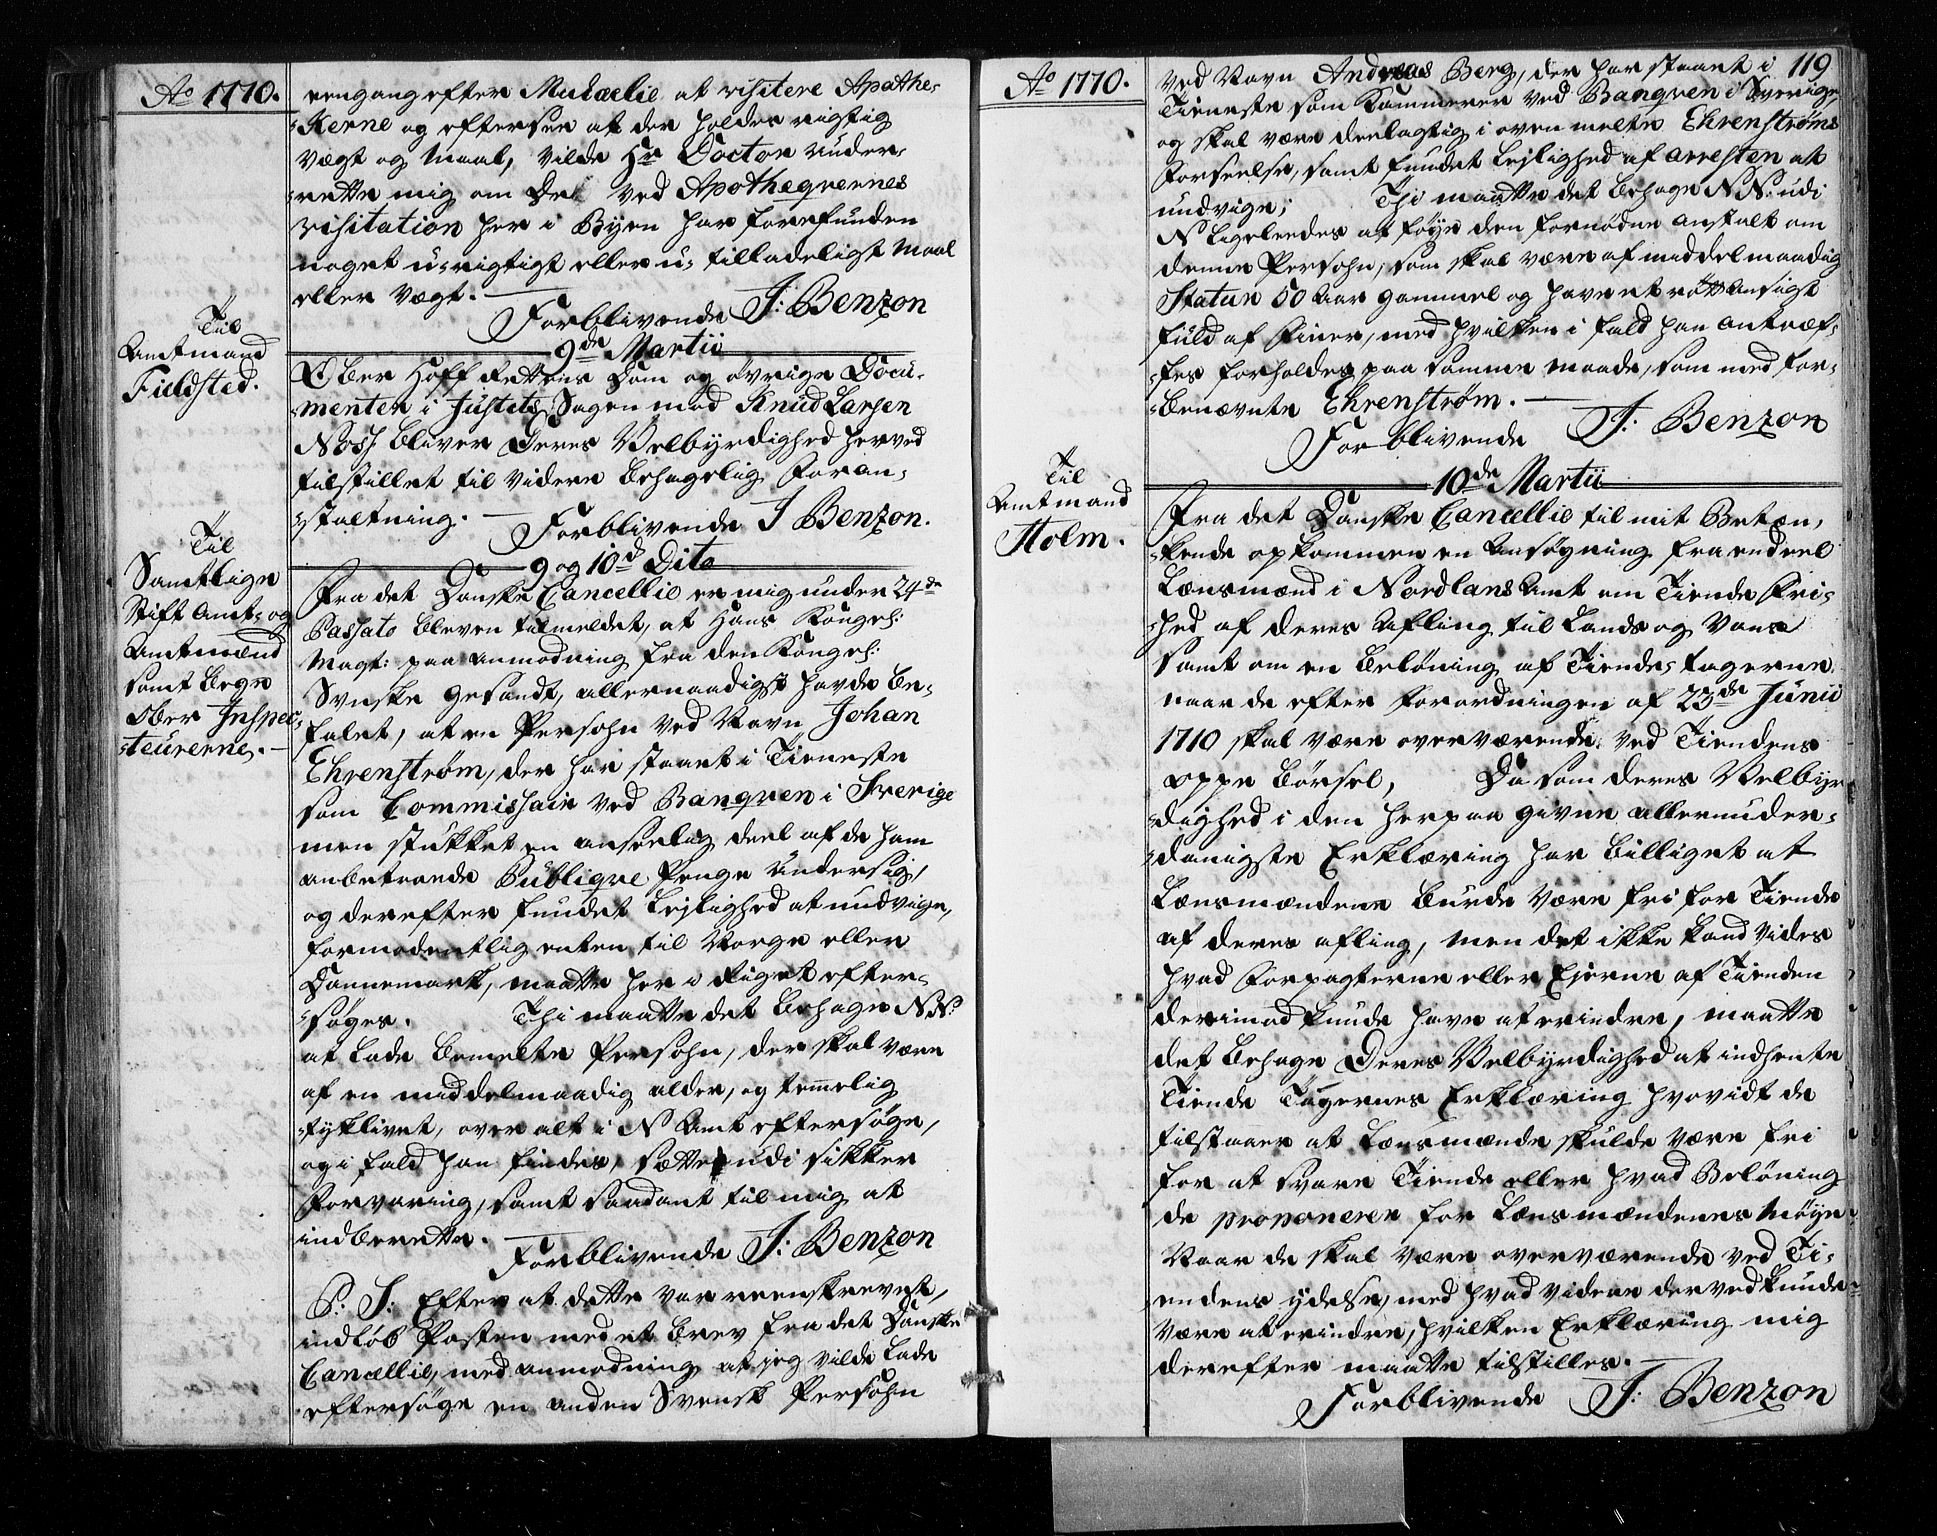 Ao 1770.
eengang efter Mutælie at visitere Apothe-
-kerne og eftersee at der holdes rigtig
Vægt og Maal, vilde Hr Doctor under-
-rette mig om De ved Apotheqvernes
visitation her i Byen har forefunden
noget u-rigtigt eller u-tilladeligt Maal
eller Vægt.
Forblivende J: Benzon
9de Martii
Til
Amtmand
Fieldsted.
Ober Hoff Rettens Dom og øvrige Docu-
-menter i Justits Sagen mod Knud Larsen
Noss bliver Deres Velbyrdighed herved
tilstillet til videre behagelig Foran-
-staltning.
Forblivende J Benzon.
9 og 10d Dito
Til
Samtlige
Stift Amt- og
Amtmænd
samt begge
Ober Inspec-
-teurerne.
Fra det Danske Cancellie er mig under 24de
Passato bleven tilmeldet, at Hans Kongel:
Mayt: paa anmodning fra den Kongel:
Svenske Gesandt, allernaadigst havde be-
falet, at en Persohn ved Navn Johan
Ehrenstrøm, der har staaet i Tieneste
som Commissair ved Banqven i Sverige
men stukket en anseelig deel af de ham
anbetroede Publiqve Penge under sig,
og derefter fundet Lejlighed at undvige,
formodentlig enten til Norge eller
Dannemark, maatte her i Riget efter-
-søges. Thi maatte det behage N N:
at lade bemelte Persohn, der skal være
af en middelmaadig alder, og temmelig
tyklivet, over alt i N Amt eftersøge,
og i fald han findes, sætte udi sikker
Forvaring, samt saadant til mig at
indberette.
Forblivende J: Benzon
P: S: Efter at dette var reenskrevet,
indløb Posten med et brev fra det Danske
Cancellie, med anmodning at jeg vilde lade
eftersøge en anden Svensk Persohn
Ao 1770.
119
ved Navn Andreas Berg, der har staaet i
Tieneste som Kammerer ved Banqven i Sverige,
og skal være deelagtig i oven melte Ehrenstrøms
Forseelse, samt fundet Lejlighed af arresten at
undvige; Thi maatte det behage N N: udi
N ligeleedes at føye den fornødne anstalt om
denne Persohn, som skal være af middelmaadig
Statur 50 Aar gammel og have et rødt Ansigt
fuld af Finer, med hvilken i fald han antræf-
-fes forholdes paa samme maade, som med for-
-benævnte Ehrenstrøm.
Forblivende J: Benzon
10de Martii
Til
Amtmand
Holm.
Fra det Danske Cancellie til mit Betæn-
-kende opkommen en Ansøgning fra endeel
Lænsmænd i Nordlans Amt om Tiende Fri-
-hed af deres Afling til Lands og Vans
samt om en beløning af Tiende-tagerne
naar de efter Forordningen af 23de Junii
1710 skal være overværende ved Tiendens
oppe børsel, Da som deres Velbyr-
-dighed i den herpaa givne allerunder-
-danigste Erklæring har billiget at
Lænsmændene burde være fri for Tiende
af deres afling, men det ikke kand vides
hvad Forpagterne eller Ejerne af Tienden
derimod kunde have at erindre, maatte
det behage Deres Velbyrdighed at indhente
Tiende Tagernes Erklæring hvovidt de
tilstaaer at Lænsmænde skulde være fri
for at svare Tiende eller hvad Beløning
de proponerer for Lænsmændenes Møye
Naar de skal være overværende ved Ti-
endens ydelse, med hvad videre derved kunde
være at erindre, hvilken Erklæring mig
derefter maatte tilstilles.
Forblivende J: Benzon